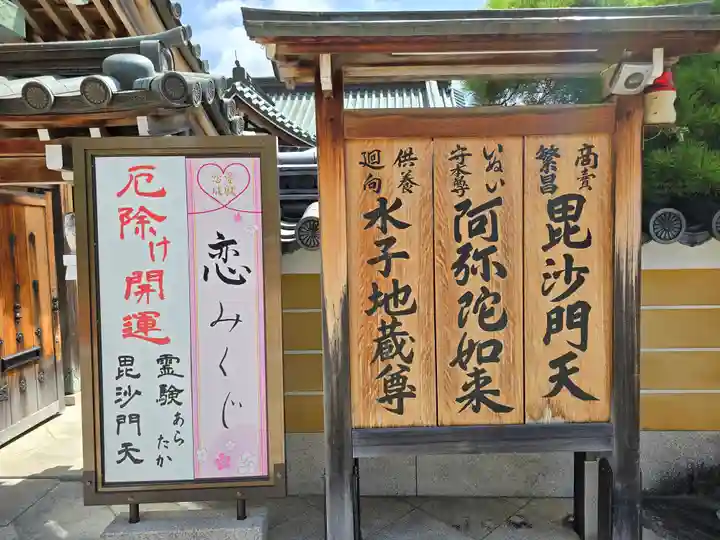 厄除け開運
霊験あらたか
毘沙門天
恋みくじ
商賣
繁昌
毘沙門天
いぬい
守本尊
阿弥陀如来
供養
廻向
水子地蔵尊